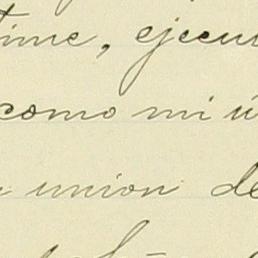 time, ejecu
como mi ú
union de